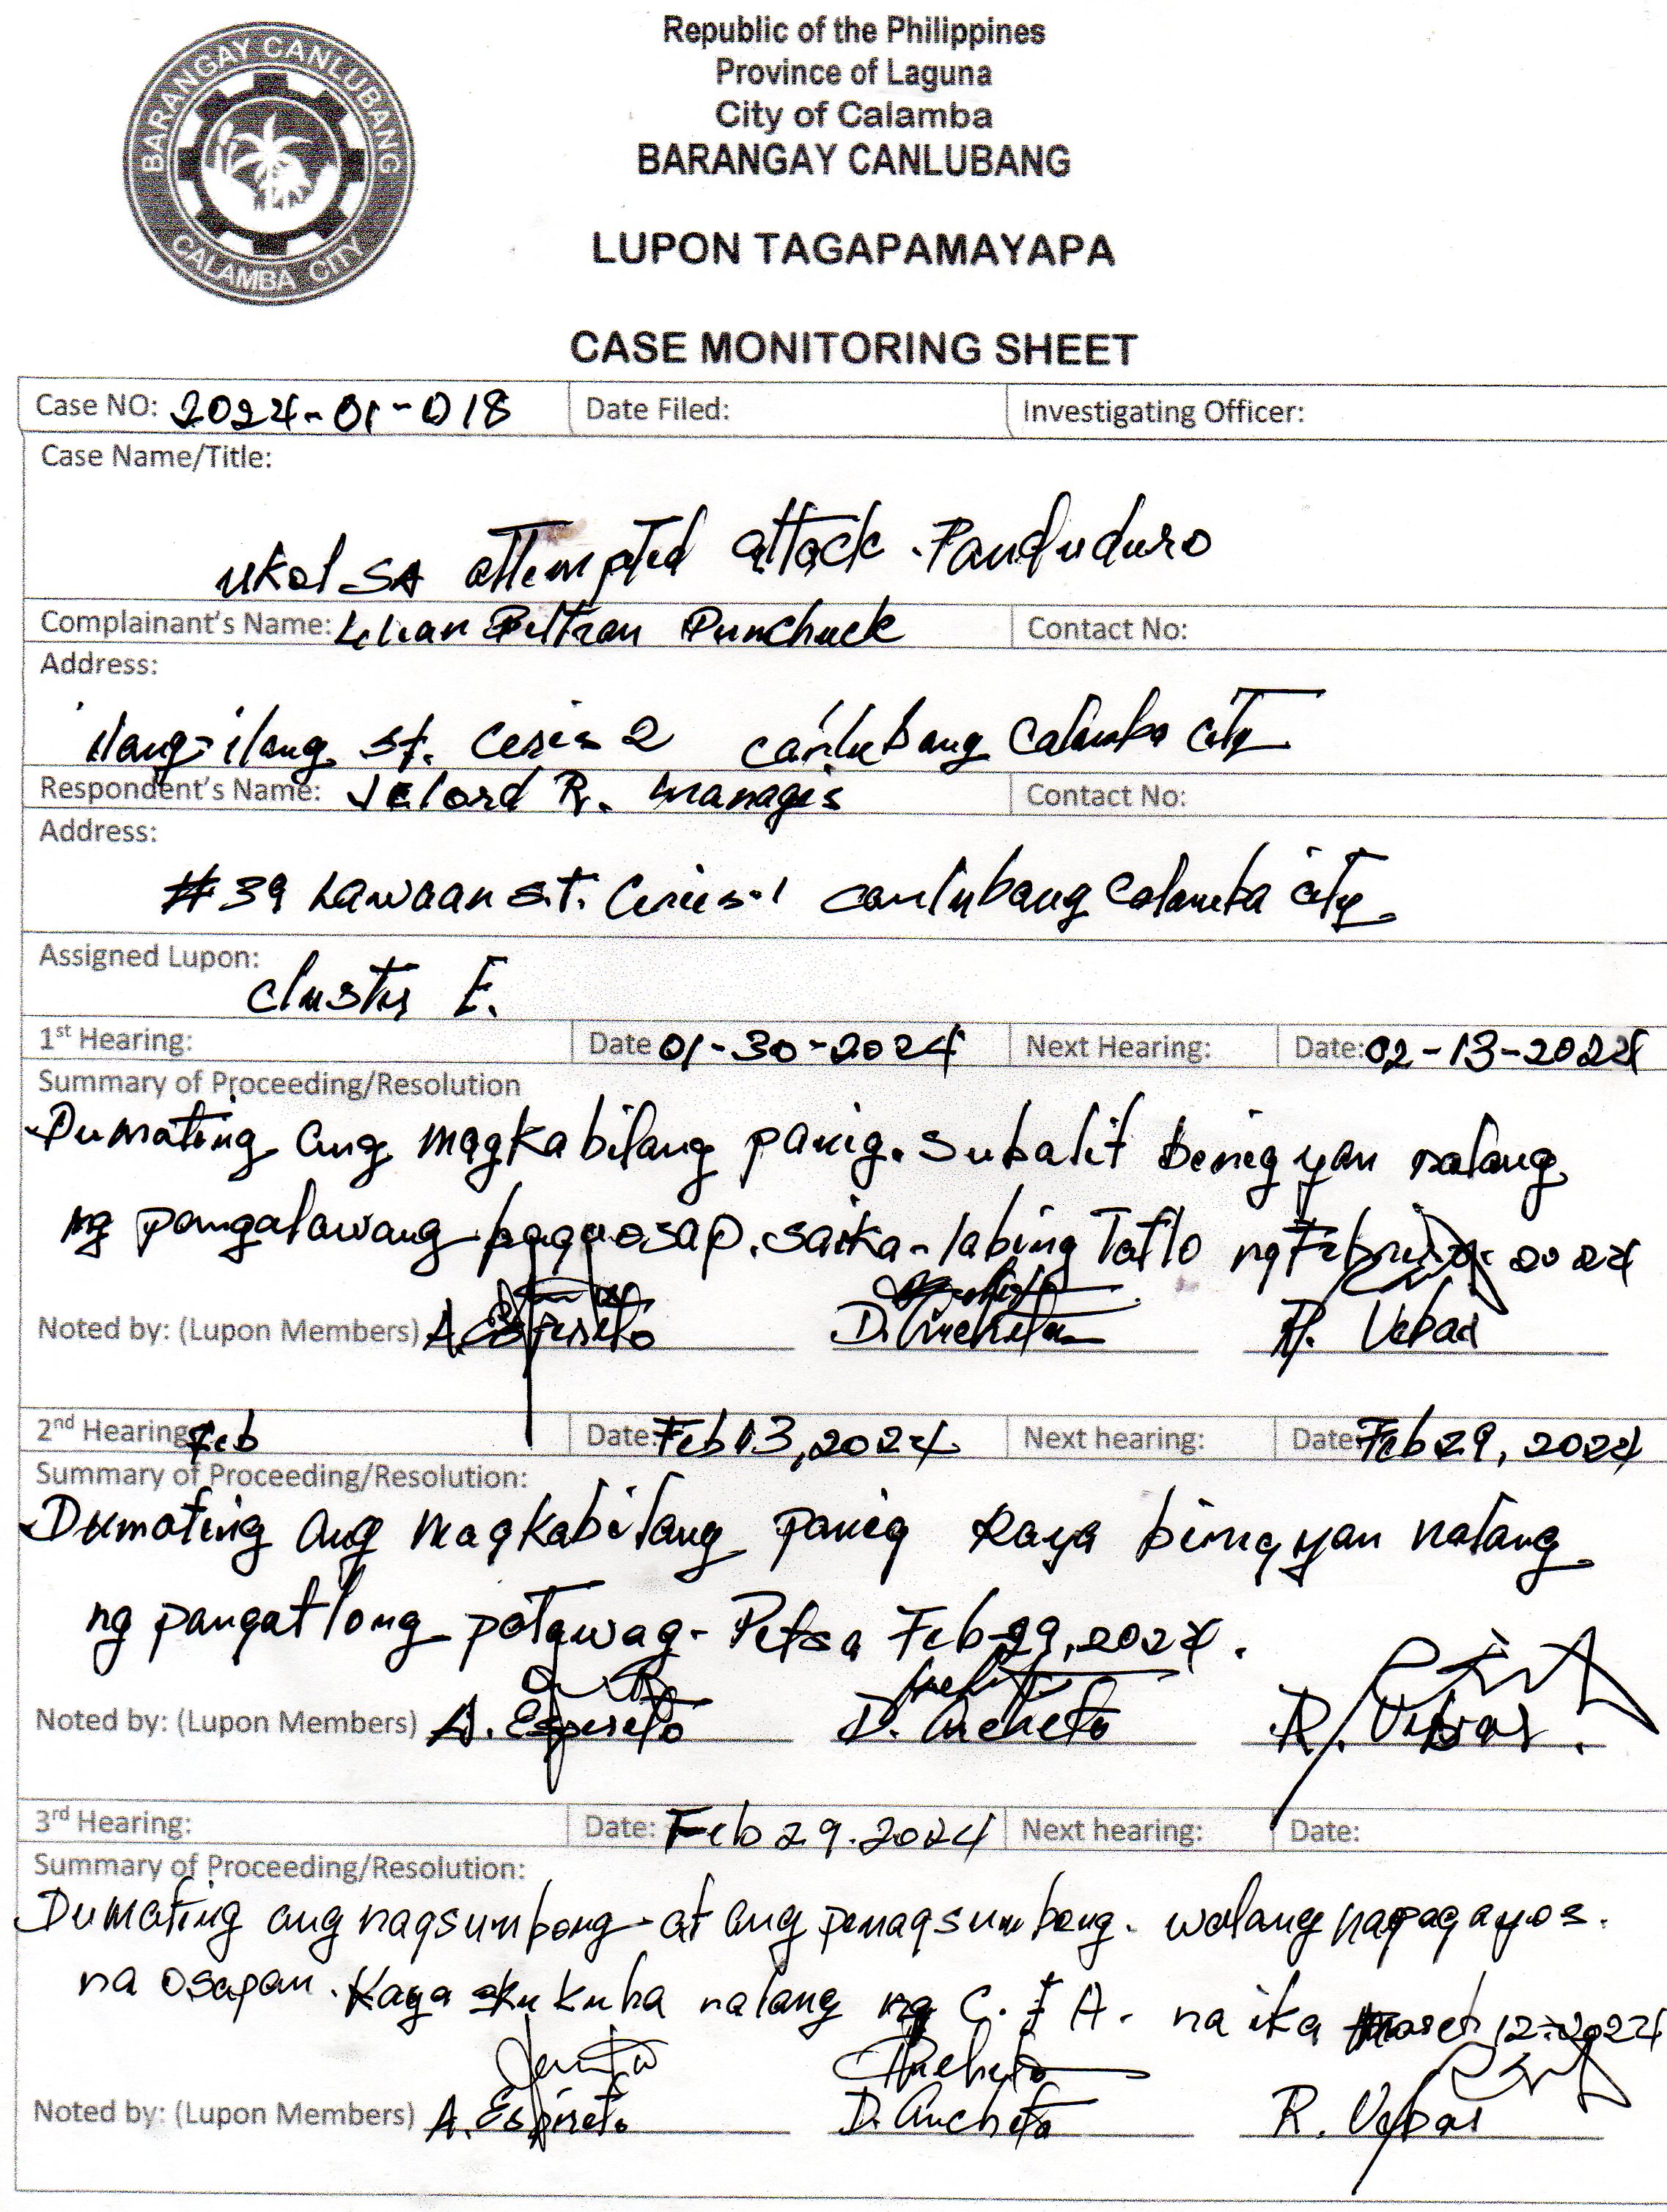 BARANGAY CANLUBANG
CALAMBA CITY
Republic of the Philippines
Province of Laguna
City of Calamba
BARANGAY CANLUBANG
LUPON TAGAPAMAYAPA
CASE MONITORING SHEET
Case NO: 2024-01-018 Date Filed: Investigating Officer:
Case Name/Title:
ukol SA attempted attack. Panduduro
Complainant's Name: Beltran Punchuck Contact No:
Address:
ilang-ilang st. Ceris 2 canlubang Calamba City
Respondent's Name: Jelord R. Manages Contact No:
Address:
#39 Lawaan s.t. Ceries-1 canlubang calamba city
Assigned Lupon:
Cluster E.
1st Hearing: Date 01-30-2024 Next Hearing: Date: 02-13-2024
Summary of Proceeding/Resolution
Dumating ang magkabilang panig. Subalit benigyan nalang
ng pangalawang paguosap. saika-labing Tatlo ng 2024
Noted by: (Lupon Members) A. Espireto D. Ancheta R. Vebar
2nd Hearing: Feb Date: Feb 13, 2024 Next hearing: Date: Feb 29, 2024
Summary of Proceeding/Resolution:
Dumating ang magkabilang panig Kaya binigyan nalang
ng pangatlong patawag- Petsa Feb-29, 2024.
Noted by: (Lupon Members) A. Espireto D. Ancheta R. Vebar.
3rd Hearing: Date: Feb 29.2024 Next hearing: Date:
Summary of Proceeding/Resolution:
Dumating ang nagsumbong-at ang penagsumbong. walang nagpagayos.
na osapan. Kaya kukuha nalang ng C.F A. na ika 12-2024
Noted by: (Lupon Members) A. Espireto D. Ancheta R. Vebar